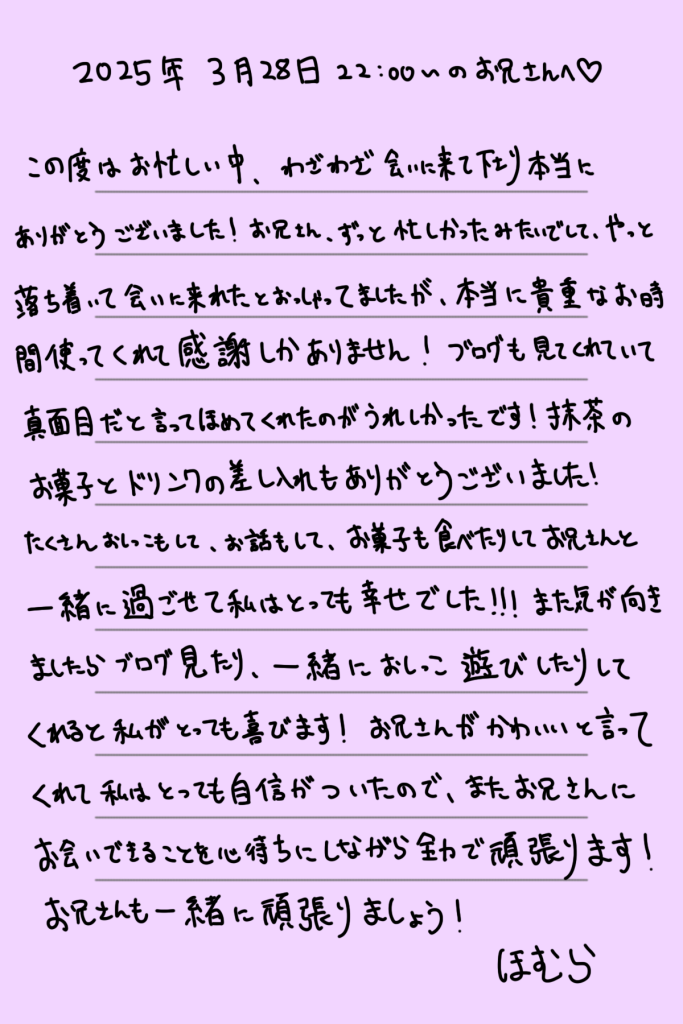 2025年 3月28日 22:00〜のお兄さんへ♡
この度はお忙しい中、わざわざ会いに来て下さり本当に
ありがとうございました！お兄さん、ずっと忙しかったみたいでして、やっと
落ち着いて会いに来れたとおっしゃってましたが、本当に貴重なお時
間使ってくれて感謝しかありません！ブログも見てくれていて
真面目だと言ってほめてくれたのがうれしかったです！抹茶の
お菓子とドリンクの差し入れもありがとうございました！
たくさんおしっこもして、お話もして、お菓子も食べたりしてお兄さんと
一緒に過ごせて私はとっても幸せでした!!!また気が向き
ましたらブログ見たり、一緒におしっこ遊びしたりして
くれると私がとっても喜びます！お兄さんがかわいいと言って
くれて私はとっても自信がついたので、またお兄さんに
お会いできることを心待ちにしながら全力で頑張ります！
お兄さんも一緒に頑張りましょう！
ほむら